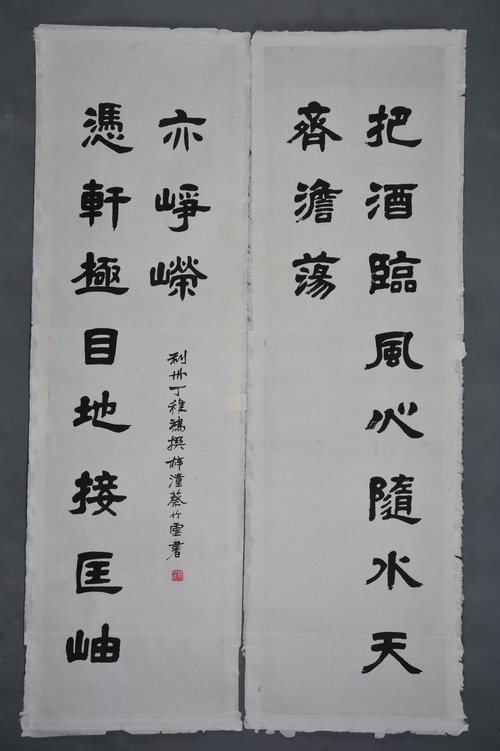 把酒臨風心隨水天
齊澹蕩
憑軒極目地接匡岫
亦崢嶸
利州丁稚鴻撰梓潼蔡竹虛書